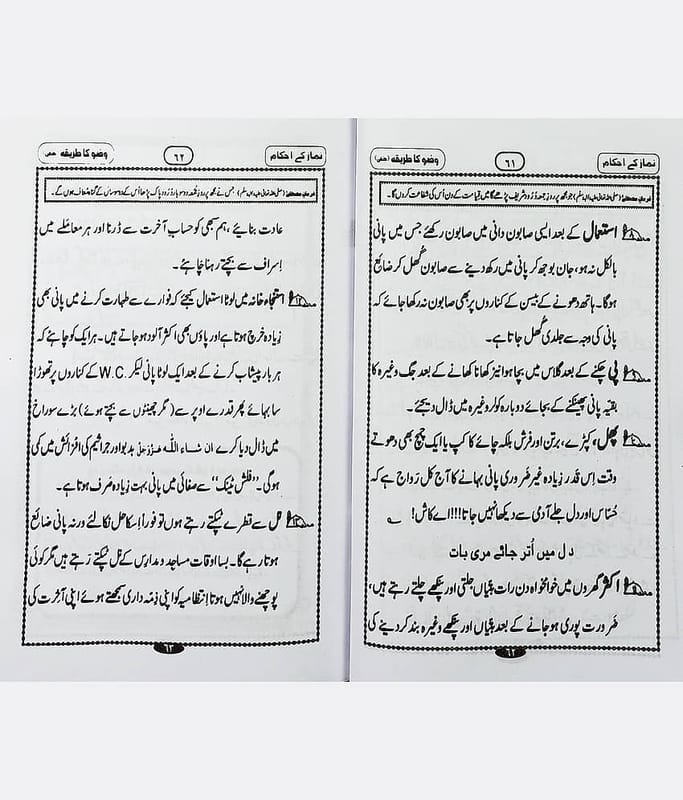 نماز کے احکام
٦١
وضو کا طریقہ (حنفی)
جو مجھ پر روزِ جمعہ دُرُود شریف پڑھے گا میں قیامت کے دن اُس کی شفاعت کروں گا۔
استعمال کے بعد ایسی صابون دانی میں صابون رکھئے جس میں پانی
بالکل نہ ہو، جان بوجھ کر پانی میں رکھ دینے سے صابون گُھل کر ضائع
ہوگا۔ ہاتھ دھونے کے بیسن کے کناروں پر بھی صابون نہ رکھا جائے کہ
پانی کی وجہ سے جلدی گُھل جاتا ہے۔
پی چکنے کے بعد گلاس میں بچا ہوا نیز کھانا کھانے کے بعد جگ وغیرہ کا
بقیہ پانی پھینکنے کے بجائے دوبارہ کولر وغیرہ میں ڈال دیجئے۔
پھل، کپڑے، برتن اور فرش بلکہ چائے کا کپ یا ایک چمچ بھی دھوتے
وقت اِس قدر زیادہ غیر ضَروری پانی بہانے کا آج کل رَواج ہے کہ
حَسّاس اور دل جلے آدمی سے دیکھا نہیں جاتا!!!! اے کاش!
دل میں اُتر جائے مری بات
اکثر گھروں میں خوامخواہ دن رات بتّیاں جلتی اور پنکھے چلتے رہتے ہیں،
ضَرورت پوری ہو جانے کے بعد بتّیاں اور پنکھے وغیرہ بند کر دینے کی
٦٢
نماز کے احکام
٦٢
وضو کا طریقہ حنفی
جس نے مجھ پر روزِ جُمُعہ دو سو بار دُرُودِ پاک پڑھا اُس کے دو سو سال کے گناہ مُعاف ہوں گے۔
عادت بنایئے، ہم سبھی کو حسابِ آخرت سے ڈرنا اور ہر معامَلے میں
اِسراف سے بچتے رہنا چاہئے۔
استنجاء خانہ میں لوٹا استعمال کیجئے کہ فوارے سے طہارت کرنے میں پانی بھی
زیادہ خرچ ہوتا ہے اور پاؤں بھی اکثر آلود ہو جاتے ہیں۔ ہر ایک کو چاہئے کہ
ہر بار پیشاب کرنے کے بعد ایک لوٹا پانی لیکر W.C. کے کناروں پر تھوڑا
سا بہائے پھر قدرے اوپر سے (مگر چھینٹوں سے بچتے ہوئے) بڑے سوراخ
میں ڈال دیا کرے ان شاء اللہ عَزَّوَجَلَّ بدبو اور جراثیم کی افزائش میں کمی
ہوگی۔ ”فلش ٹینک“ سے صفائی میں پانی بہت زیادہ صَرف ہوتا ہے۔
نل سے قطرے ٹپکتے رہتے ہوں تو فوراً اِسکا حل نکالئے ورنہ پانی ضائع
ہوتا رہے گا۔ بسا اوقات مساجد و مدارِس کے نل ٹپکتے رَہتے ہیں مگر کوئی
پوچھنے والا نہیں ہوتا انتظامیہ کو اپنی ذِمّہ داری سمجھتے ہوئے اپنی آخرت کی
٦٣